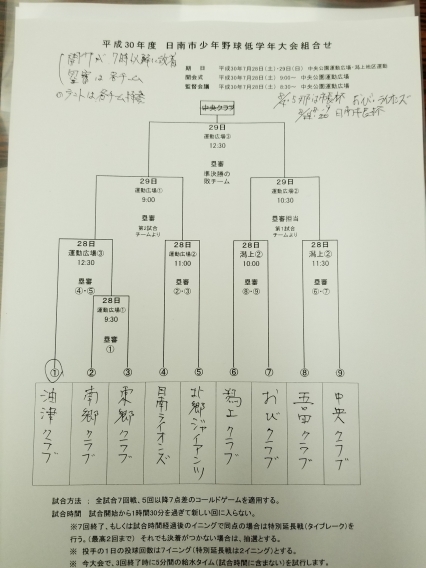 平成30年度 日南市少年野球低学年大会組合せ
期 日 平成30年7月28日(土)・29日(日) 中央公園運動広場・潟上地区運動
開会式 平成30年7月28日(土) 9:00~ 中央公園運動広場
監督会議 平成30年7月28日(土) 8:30~ 中央公園運動広場
開門が 7時以降に改着
塁審は各チーム
市長杯 おび、ライオンズ
日南市長杯
中央クラブ
29日
運動広場③
12:30
塁審
準決勝の
敗チーム
29日
運動広場①
9:00
塁審
第2試合
チームより
29日
運動広場②
10:30
塁審担当
第1試合
チームより
28日
運動広場③
12:30
塁審
④・⑤
28日
運動広場②
11:00
塁審
②・③
28日
潟上②
10:00
塁審
⑧・⑨
28日
潟上②
11:30
塁審
⑥・⑦
28日
運動広場①
9:30
塁審
①
① ② ③ ④ ⑤ ⑥ ⑦ ⑧ ⑨
油津クラブ
南郷クラブ
東郷クラブ
日南ライオンズ
北郷ジャイアンツ
潟上クラブ
おびクラブ
吾田クラブ
中央クラブ
試合方法 : 全試合7回戦、5回以降7点差のコールドゲームを適用する。
試合時間 試合開始から1時間30分を過ぎて新しい回に入らない。
※7回終了、もしくは試合時間経過後のイニングで同点の場合は特別延長戦(タイブレーク)を
行う。(最高2回まで) それでも決着がつかない場合は、抽選とする。
※ 投手の1日の投球回数は7イニング(特別延長戦は2イニング)とする。
※ 今大会で、3回終了時に5分間の給水タイム(試合時間に含まない)を試行します。